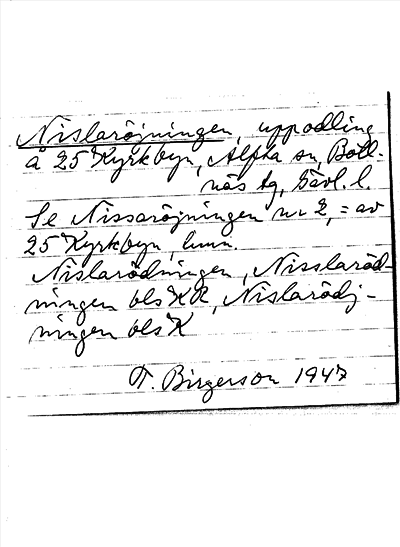 Nislaröjningen, uppodling
å 25 Kyrkbyn, Alfta sn, Boll-
näs tg, Gävl. l.
Se Nissaröjningen nr 2, = av
25 Kyrkbyn, hmn.
Nislarödningen, Nisslaröd-
ningen bls KR, Nislarödj-
ningen bls K
T. Birgerson 1947